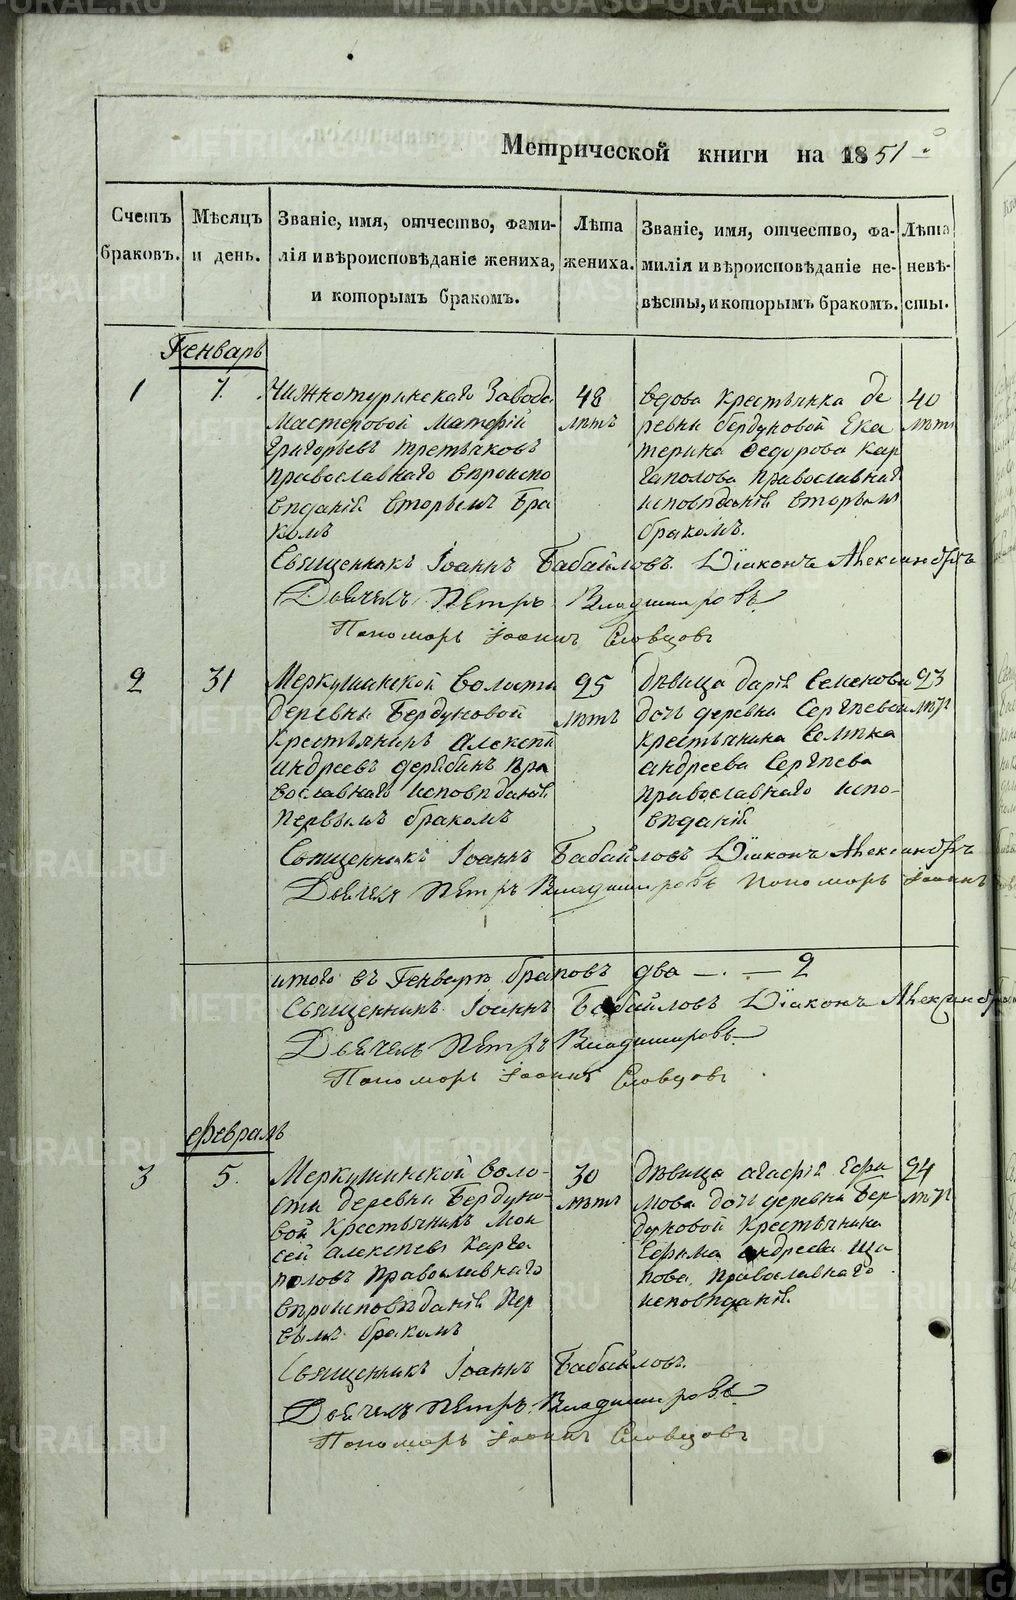 METRIKI.GASO-URAL.RU
Метрической книги на 1851 о
Счетъ браковъ.
Мѣсяцъ и день.
Званіе, имя, отчество, фами-
лія и вѣроисповѣданіе жениха,
и которымъ бракомъ.
Лѣта жениха.
Званіе, имя, отчество, фа-
милія и вѣроисповѣданіе не-
вѣсты, и которымъ бракомъ.
Лѣта невѣ-
сты.
Генварь
1
7.
Нижнотуринскаго Завода
Мастеровой Матфій
Григорьевъ третьяковъ
православнаго вѣроиспо
вѣданія вторымъ бра
комъ
48
лѣтъ
вдова крестьянка де
ревни бердуковой Ека
терина Федорова Кар
гаполова православнаго
исповѣданія вторымъ
бракомъ.
40
лѣтъ
Священникъ Іоаннъ Бабайловъ. Діаконъ Александръ
Дьячекъ Петръ Владимировъ
Пономарь Іоаннъ Словцовъ
2
31
Меркушинской волости
деревни Бердуковой
крестьянинъ Алексѣй
андреевъ дерябинъ пра
вославнаго исповѣданія
первымъ бракомъ
25
лѣтъ
дѣвица дарія Семенова
дочь деревни Сергѣевой
крестьянина Семена
андреева Сергѣева
православнаго испо-
вѣданія
23
лѣтъ
Священникъ Іоаннъ Бабайловъ Діаконъ Александръ
Дьячекъ Петръ Владимировъ Пономарь Іоаннъ
итого въ Генварѣ браковъ два — . — 2
Священникъ Іоаннъ Бабайловъ Діаконъ Александръ
Дьячекъ Петръ Владимировъ
Пономарь Іоаннъ Словцовъ
Февраль
3
5.
Меркушинской воло-
сти деревни Бердуко-
вой Крестьянинъ Мои
сей алексѣевъ Карга
половъ Православнаго
вѣроисповѣданія Пер
вымъ бракомъ
30
лѣтъ
дѣвица агафія Ефи
мова дочь деревни Бер
дуковой Крестьянина
Ефима андреева Ща
пова Православнаго
исповѣданія.
24
лѣтъ
Священникъ Іоаннъ Бабайловъ.
Дьячекъ Петръ Владимировъ
Пономарь Іоаннъ Словцовъ